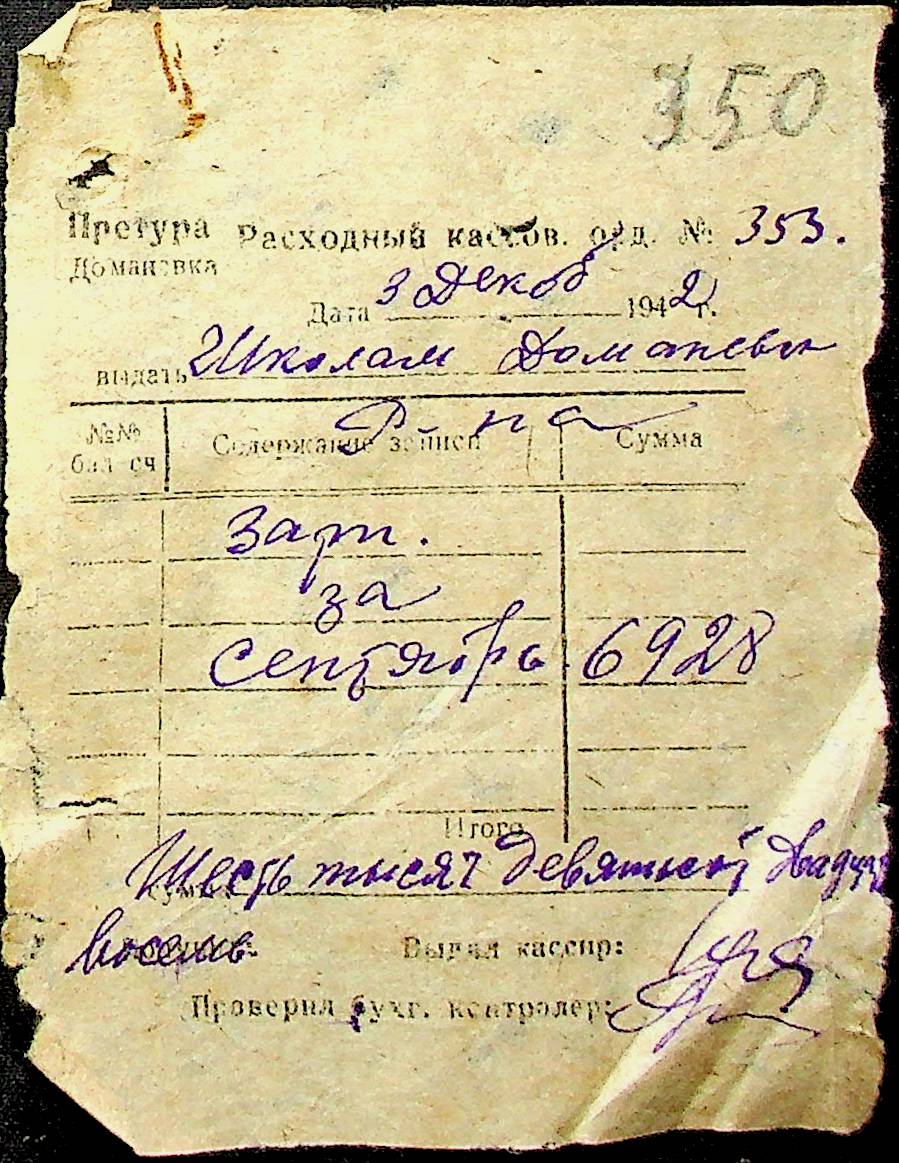 350
Претура Расходный кассов. орд. № 353.
Домановка
Дата 3 Декаб 1942 г.
выдать Школам Доманевск
Р-на
№№ бал сч Содержание записи Сумма
Зарп.
за
Сентябрь 6928
Итого
Шесть тысяч девятьсот двадцать
восемь
Выдал кассир:
Проверил бухг. контролер: